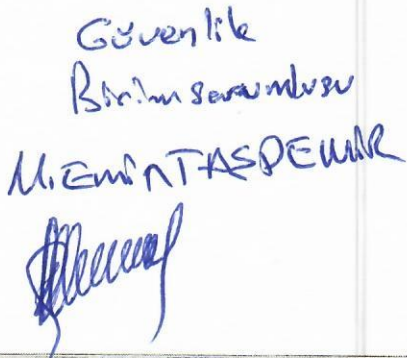 Güvenlik
Birim sorumlusu
M.EMİN TAŞDEMİR